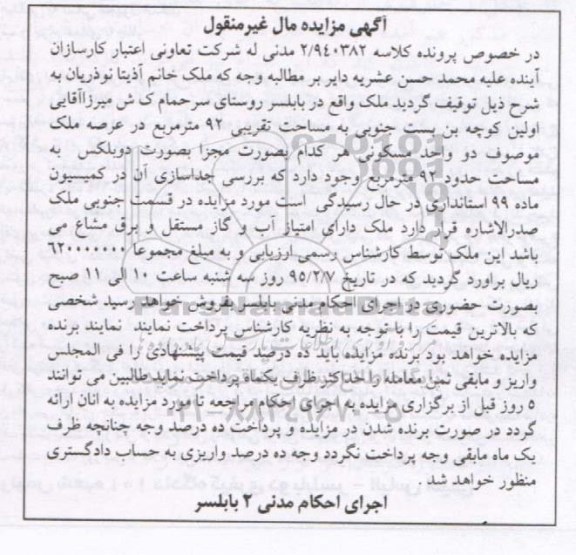 آگهی مزایده مال غیرمنقول
در خصوص پرونده کلاسه ۲/۹۴۰۳۸۲ مدنی له شرکت تعاونی اعتبار کارسازان
آینده علیه محمد حسن عشریه دایر بر مطالبه وجه که ملک خانم آذیتا نوذریان به
شرح ذیل توقیف گردید ملک واقع در بابلسر روستای سرحمام ک ش میرزاآقایی
اولین کوچه بن بست جنوبی به مساحت تقریبی ۹۲ مترمربع در عرصه ملک
موصوف دو واحد مسکونی هر کدام بصورت مجزا بصورت دوبلکس به
مساحت حدود ۹۲ مترمربع وجود دارد که بررسی جداسازی آن در کمیسیون
ماده ۹۹ استانداری در حال رسیدگی است مورد مزایده در قسمت جنوبی ملک
صدرالاشاره قرار دارد ملک دارای امتیاز آب و گاز مستقل و برق مشاع می
باشد این ملک توسط کارشناس رسمی ارزیابی و به مبلغ مجموعا ۶۲۰۰۰۰۰۰۰
ریال براورد گردید که در تاریخ ۹۵/۲/۷ روز سه شنبه ساعت ۱۰ الی ۱۱ صبح
بصورت حضوری در اجرای احکام مدنی بابلسر بفروش خواهد رسید شخصی
که بالاترین قیمت را با توجه به نظریه کارشناس پرداخت نمایند نمایند برنده
مزایده خواهد بود برنده مزایده باید ده درصد قیمت پیشنهادی را فی المجلس
واریز و مابقی ثمن معامله را حداکثر ظرف یکماه پرداخت نماید طالبین می توانند
۵ روز قبل از برگزاری مزایده به اجرای احکام مراجعه تا مورد مزایده به انان ارائه
گردد در صورت برنده شدن در مزایده و پرداخت ده درصد وجه چنانچه ظرف
یک ماه مابقی وجه پرداخت نگردد وجه ده درصد واریزی به حساب دادگستری
منظور خواهد شد .
اجرای احکام مدنی ۲ بابلسر
ParsNamadData
۰۲۱-۸۸۳۴۹۶۷۰-۵